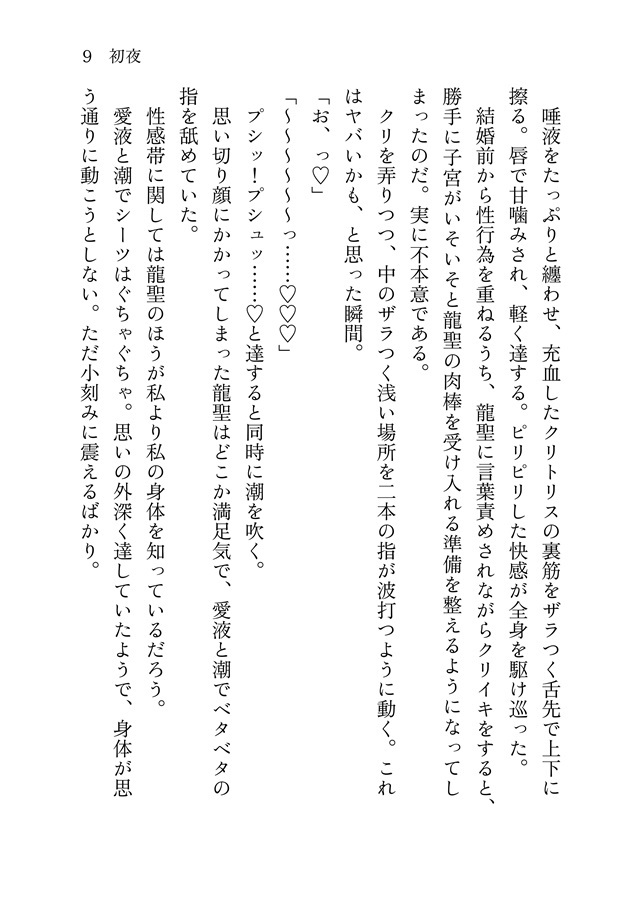 9　初夜
　唾液をたっぷりと纏わせ、充血したクリトリスの裏筋をザラつく舌先で上下に
擦る。唇で甘噛みされ、軽く達する。ピリピリした快感が全身を駆け巡った。
　結婚前から性行為を重ねるうち、龍聖に言葉責めされながらクリイキをすると、
勝手に子宮がいそいそと龍聖の肉棒を受け入れる準備を整えるようになってし
まったのだ。実に不本意である。
　クリを弄りつつ、中のザラつく浅い場所を二本の指が波打つように動く。これ
はヤバいかも、と思った瞬間。
「お、っ♡」
「～～～～～～っ……♡♡♡」
　プシッ！プシュッ……♡と達すると同時に潮を吹く。
　思い切り顔にかかってしまった龍聖はどこか満足気で、愛液と潮でベタベタの
指を舐めていた。
　性感帯に関しては龍聖のほうが私より私の身体を知っているだろう。
　愛液と潮でシーツはぐちゃぐちゃ。思いの外深く達していたようで、身体が思
う通りに動こうとしない。ただ小刻みに震えるばかり。